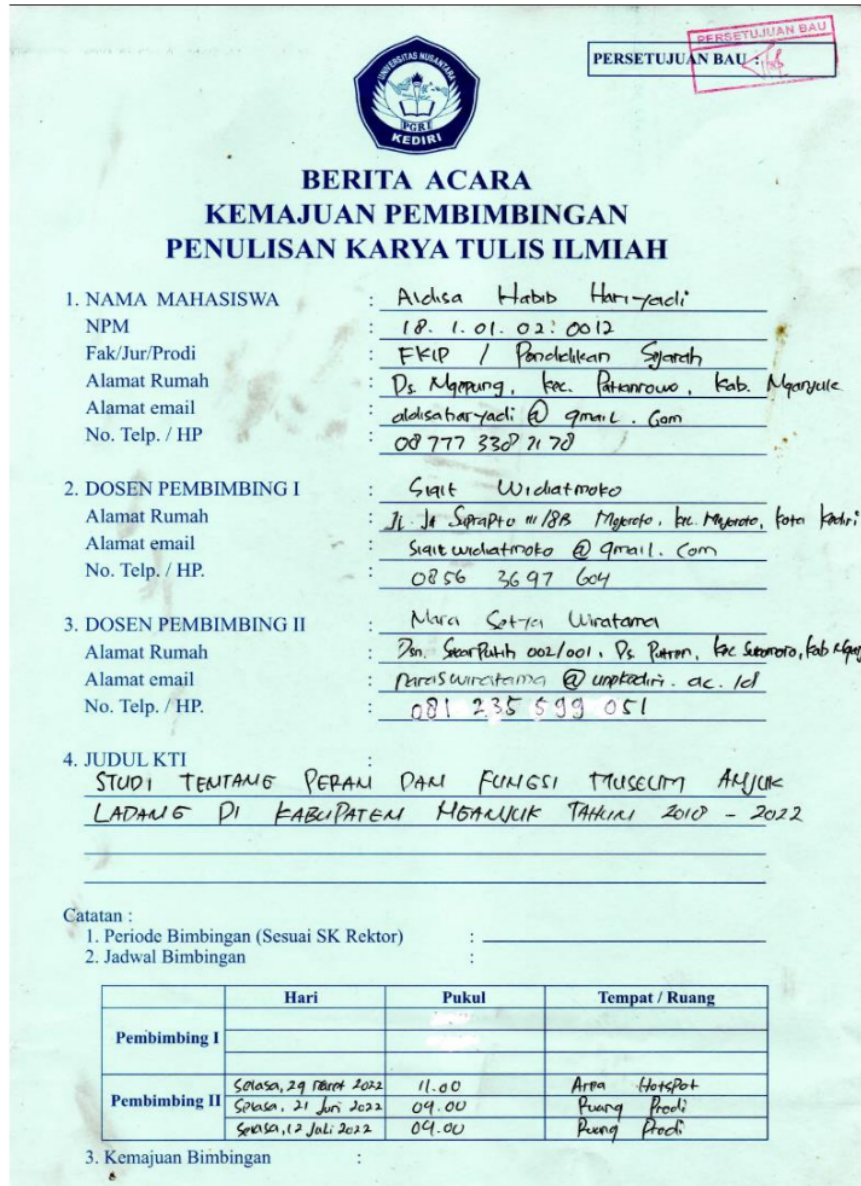 PERSETUJUAN BAU
PERSETUJUAN BAU :
UNIVERSITAS NUSANTARA
PGRI
KEDIRI
BERITA ACARA
KEMAJUAN PEMBIMBINGAN
PENULISAN KARYA TULIS ILMIAH
1. NAMA MAHASISWA : Aldisa Habib Hariyadi
NPM : 18. 1. 01. 02. 0012
Fak/Jur/Prodi : FKIP / Pendidikan Sejarah
Alamat Rumah : Ds. Ngepung, kec. Patianrowo, Kab. Nganjuk
Alamat email : aldisahariyadi @ gmail . Com
No. Telp. / HP : 08777 3382178
2. DOSEN PEMBIMBING I : Sigit Widiatmoko
Alamat Rumah : Jl. Suprapto III/8B Mojoroto, kec. Mojoroto, Kota Kediri
Alamat email : Sigitwidiatmoko @ gmail. Com
No. Telp. / HP. : 0856 3697 604
3. DOSEN PEMBIMBING II : Nara Setya Wiratama
Alamat Rumah : Dsn. SekarPutih 002/001, Ds. Putren, kec Sukomoro, Kab
Alamat email : naraswiratama @ unpkediri. ac. id
No. Telp. / HP. : 081 235 599 051
4. JUDUL KTI :
STUDI TENTANG PERAN DAN FUNGSI MUSEUM ANJUK
LADANG DI KABUPATEN NGANJUK TAHUN 2018 - 2022
Catatan :
1. Periode Bimbingan (Sesuai SK Rektor) :
2. Jadwal Bimbingan :
Hari Pukul Tempat / Ruang
Pembimbing I
Pembimbing II Selasa, 29 Maret 2022 11.00 Area Hotspot
Selasa, 21 Juni 2022 09.00 Ruang Prodi
Selasa, 12 Juli 2022 09.00 Ruang Prodi
3. Kemajuan Bimbingan :